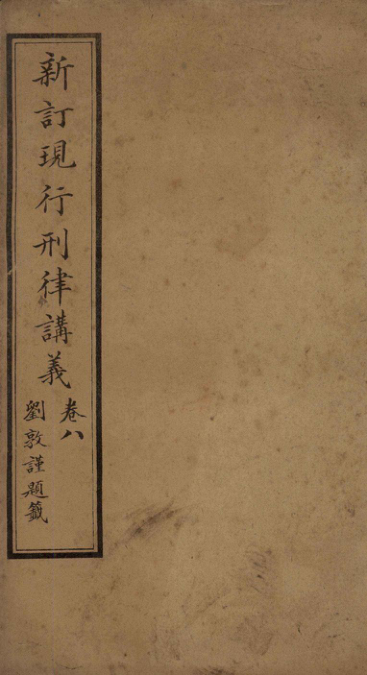 新訂現行刑律講義
卷八
劉敦謹題籤